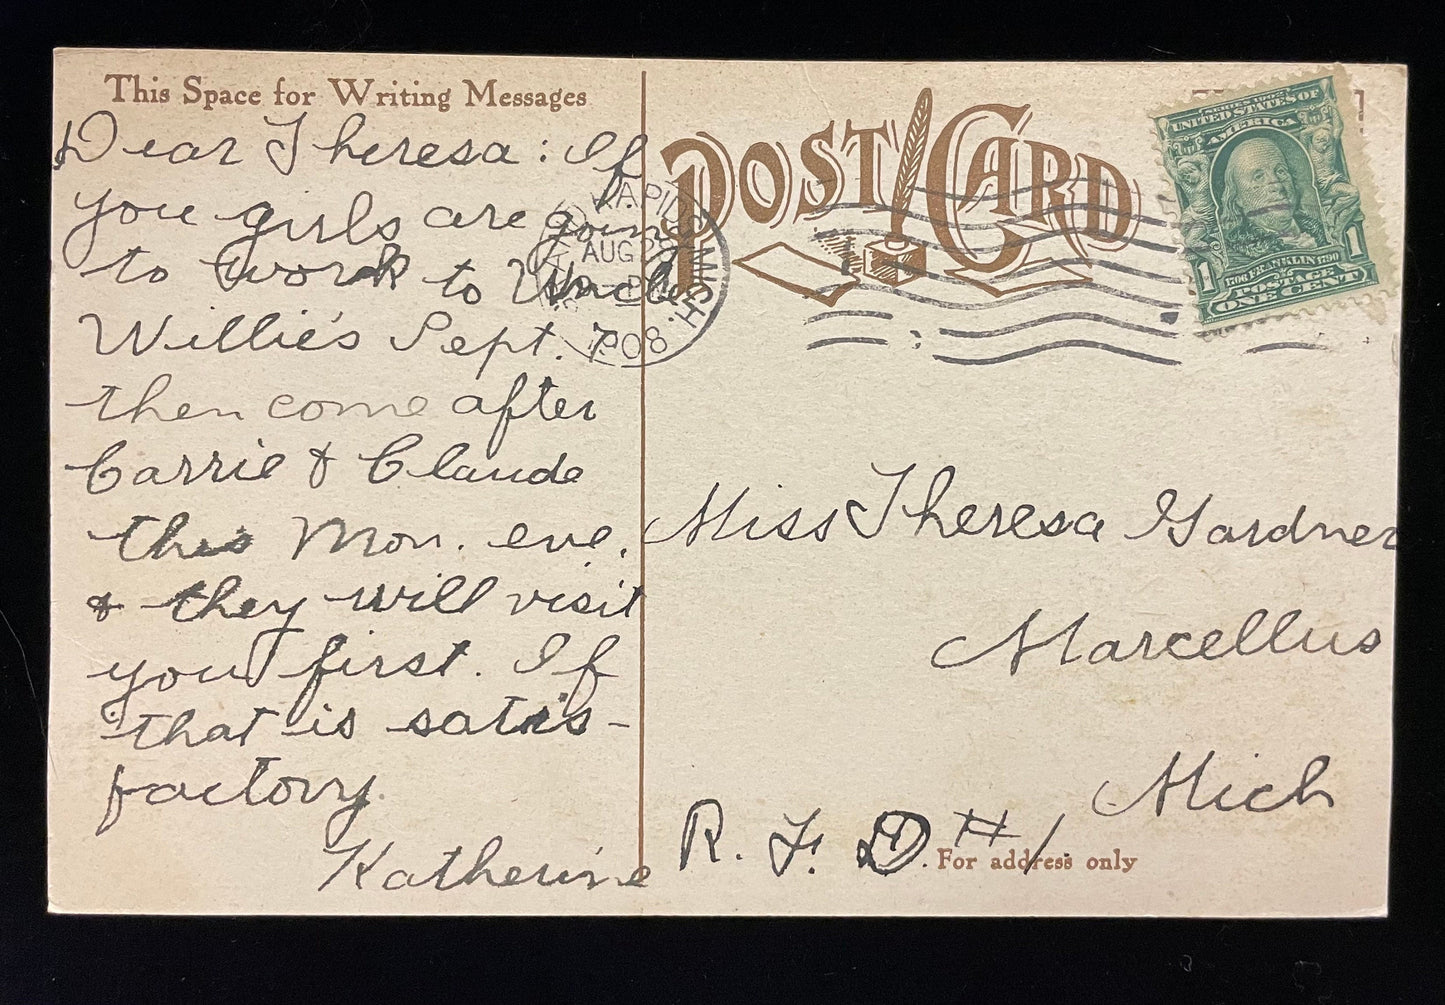 This Space for Writing Messages
Dear Theresa: If
you girls are going
to work to Uncle
Willie's Sept. 7
then come after
Carrie & Claude
this Mon. eve.
& they will visit
you first. If
that is satis-
factory.
Katherine
POST CARD
RAPIDS MICH.
AUG 28
1908
SERIES 1902
UNITED STATES OF
AMERICA
1706 FRANKLIN 1790
1 POSTAGE 1
ONE CENT
Miss Theresa Gardner
Marcellus
Mich
R. F. D. # 1.
For address only